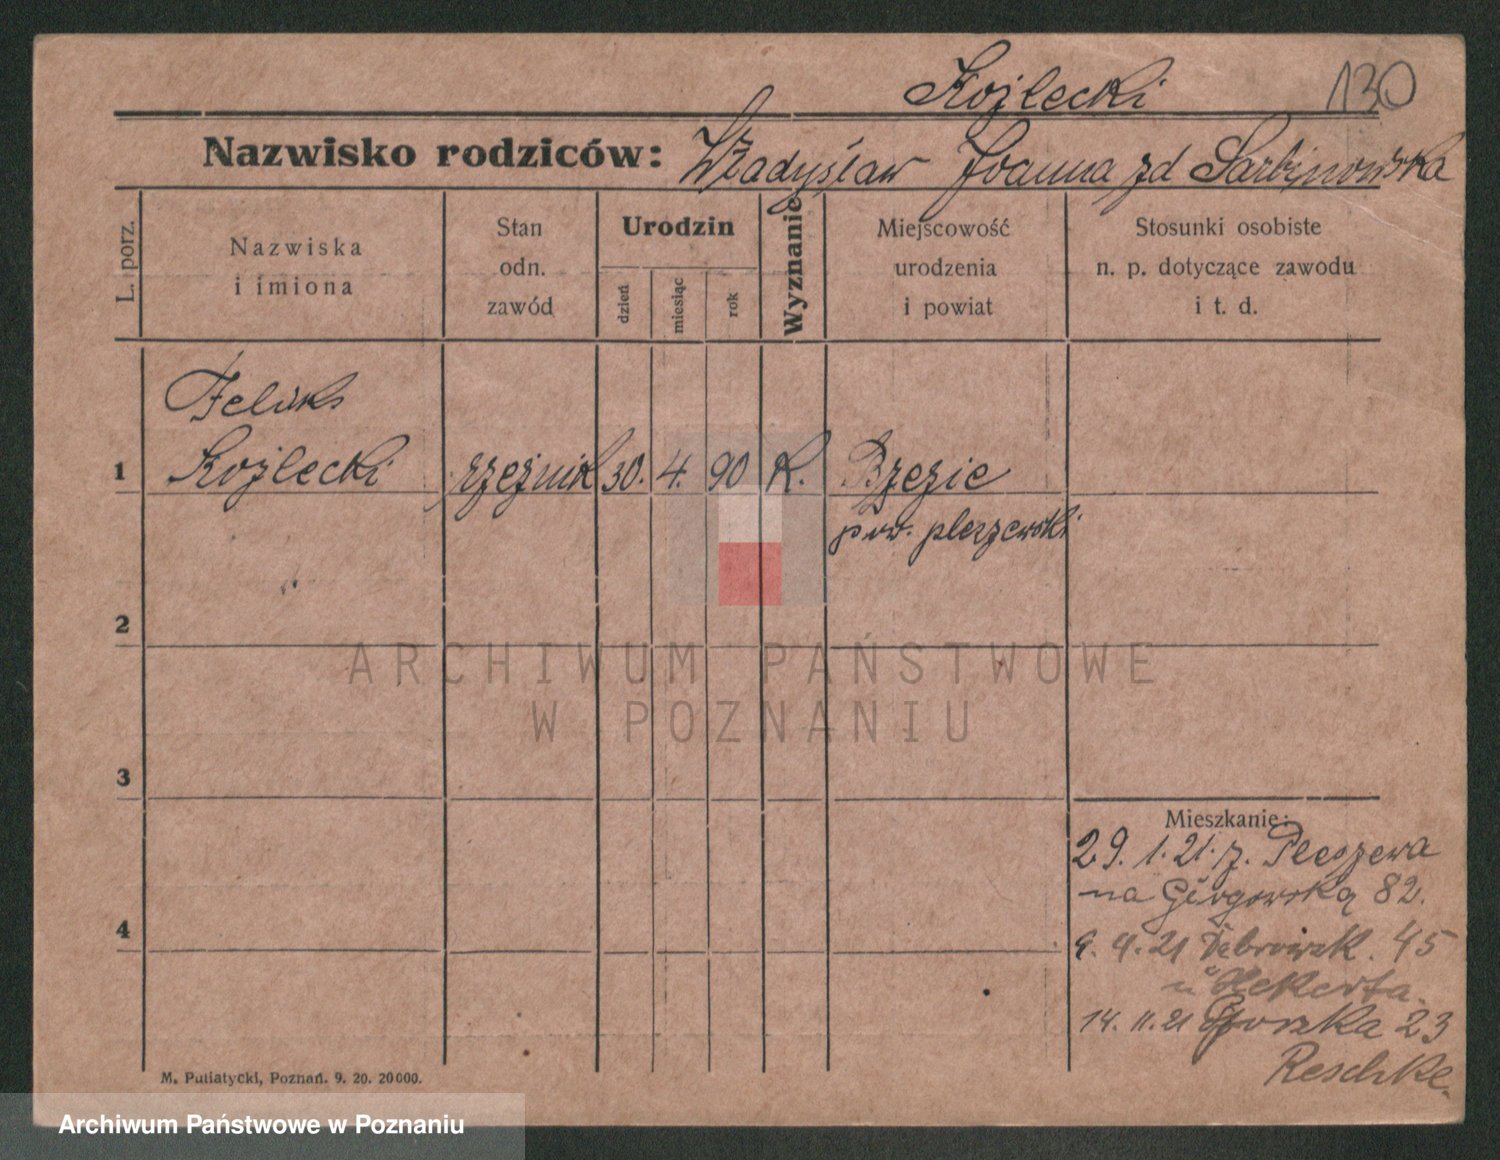 Kozlecki 130
Nazwisko rodziców: Władysław Joanna zd Sarbinowska
L. porz.
Nazwiska
i imiona
Stan
odn.
zawód
Urodzin
dzień
miesiąc
rok
Wyznanie
Miejscowość
urodzenia
i powiat
Stosunki osobiste
n. p. dotyczące zawodu
i t. d.
Feliks
1 Kozlecki rzeźnik 30. 4. 90 K. Brzezie
pow. pleszewski
2
3
4
ARCHIWUM PAŃSTWOWE
W POZNANIU
Mieszkanie:
29. 1. 21. z. Pleszewa
na 82.
9. 4. 21 45
u Hekerta.
14. 11. 21 23
Reschke.
M. Putiatycki, Poznań. 9. 20. 20000.
Archiwum Państwowe w Poznaniu